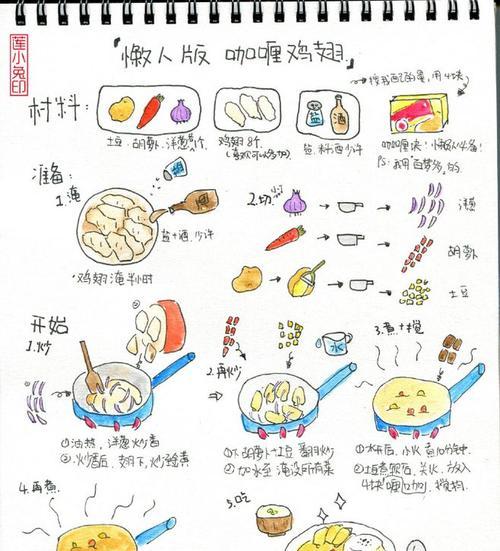 莲小兔印
懒人版 咖喱鸡翅
材料:
用4块
土豆、胡萝卜、洋葱
鸡翅8个
盐 酒
盐、料酒少许
咖喱块!懒人必备!
PS:我用"百梦多"的
准备:
1.腌
盐
酒
盐+酒 少许
鸡翅腌半小时
2.切
洋葱
胡萝卜
土豆
开始
1.炒
①油热,洋葱炒香
②炒香后,翅下,炒金黄
2.再炒
水
①下胡萝卜+土豆 翻炒
②加水至淹没所有菜
3.煮+搅
①水开后,小火煮10分钟
关火,放入
4块咖喱,搅拌
4.再煮
5.吃